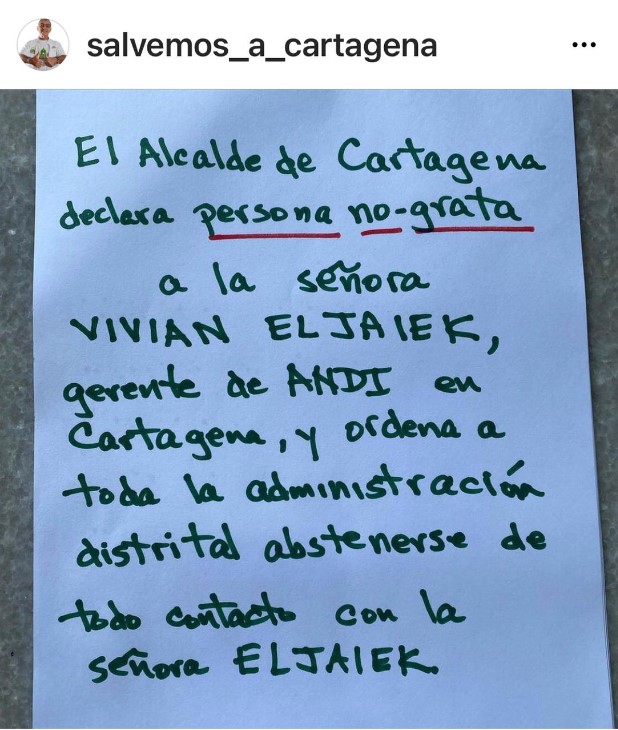 salvemos_a_cartagena
El Alcalde de Cartagena
declara persona no-grata
a la señora
VIVIAN ELJAIEK,
gerente de ANDI en
Cartagena, y ordena a
toda la administración
distrital abstenerse de
todo contacto con la
señora ELJAIEK.